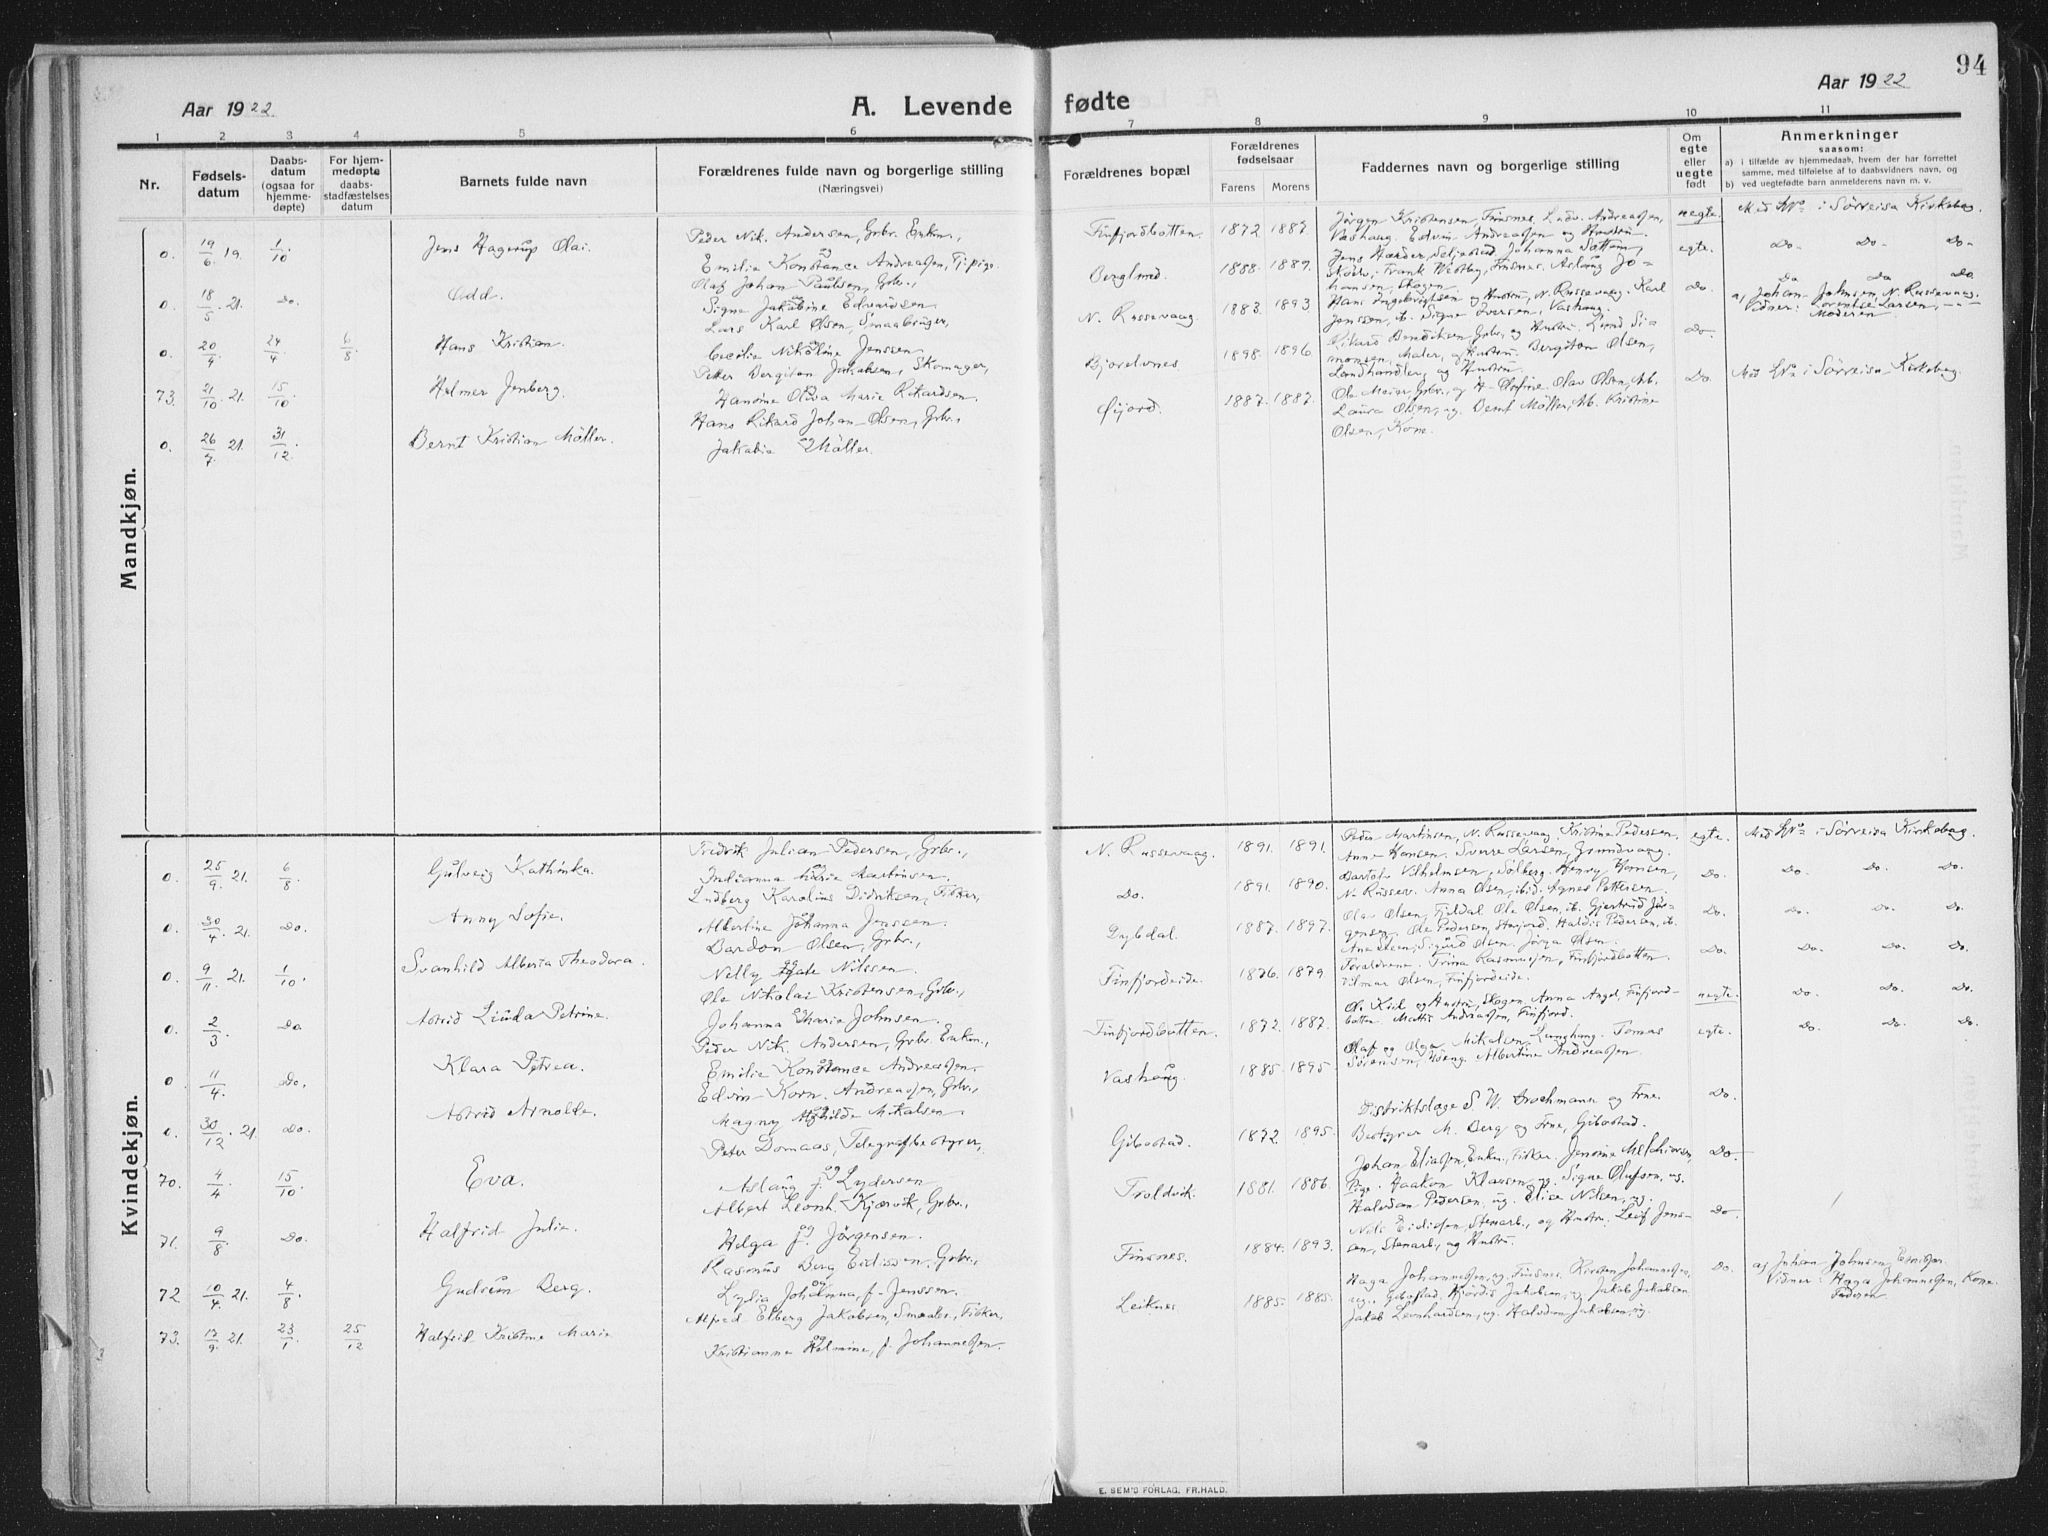 94
Aar 1922
A. Levende
fødte
Aar 1922
1 2 3 4 5 6 7 8 9 10 11
Nr.
Fødsels-
datum
Daabs-
datum
(ogsaa for
hjemme-
døpte)
For hjem-
medøpte
daabs-
stadfæstelses
datum
Barnets fulde navn
Forældrenes fulde navn og borgerlige stilling
(Næringsvei)
Forældrenes bopæl
Forældrenes
fødselsaar
Farens Morens
Faddernes navn og borgerlige stilling
Om
egte
eller
uegte
født
Anmerkninger
saasom:
a) i tilfælde av hjemmedaab, hvem der har forrettet
samme, med tilføielse af to daabsvidners navn, og
b) ved uegtefødte barn anmelderens navn m. v.
Mandkjøn.
0. 19/6. 19. 1/10. Jens Hagerup Olai.
Peder Nik. Andersen, Grbr. Enkm.,
og
Emilie Konstance Andreassen, Tj. pige.
Finfjordbotten. 1872 1887.
Jørgen Kristensen, Finsnes. Ludv. Andreassen,
Vashaug. Edvin Andreassen og Hustru.
uegte.
Med No i Sørreisa Kirkebog.
0. 18/5. 21. Do. Odd.
Olaf Johan Paulsen, Grbr.,
og
Signe Jakobine Edvardsen.
Berglund. 1888. 1889.
egte. Do- Do- Do-
0. 20/4 24/4 6/8 Hans Kristian.
Lars Karl Olsen, Smaabruger,
og
Cecilie Nikoline Jenssen.
N. Russevaag. 1883. 1893.
Hans Ingebrigtsen og Hustru, N. Russevaag. Karl
Jenssen, ib. Signe Iversen, Vashaug.
Do. Do Do Do.
a) Johan Johnsen, N. Russevaag.
Vidner: Lorentse Larsen,
Moderen.
73. 21/10. 21. 15/10. Helmer Jenberg.
Petter Bergiton Jakobsen, Skomager,
og
Hansine Oliva Marie Rikardsen.
Bjorelvnes 1898. 1896.
Rikard Bendiksen, Grbr., og Hustru. Lund Si-
monsen, Maler, og Hustru. Bergiton Olsen,
Landhandler, og Hustru.
Do.
0. 26/7. 21. 31/12. Bernt Kristian Møller.
Hans Rikard Johan Olsen, Grbr.,
og
Jakobia Møller.
Øijord. 1887. 1887.
Laura Olsen, ug. Bernt Møller, ib. Kristine
Olsen, Kone.
Do. Med No i Sørreisa Kirkebog.
Kvindekjøn.
0. 25/9. 21. 6/8. Gulveig Kathinka.
Fredrik Julian Pedersen, Grbr.,
og
Julianna Marie Martinsen.
N. Russevaag. 1891. 1891.
Peder Martinsen, N. Russevaag. Kristine Pedersen,
Anna Hansen. Sverre Larsen, Grundvaag.
egte. Med No i Sørreisa Kirkebog.
0. 30/4. 21. Do. Anny Sofie.
Lndberg Karolius Didriksen, Fisker,
og
Albertine Johanna Jenssen.
Do. 1891. 1890.
Bartolo Vilhelmsen, Solberg. Henry Hansen,
N. Russev. Anna Olsen, ibid. Agnes Pettersen.
Do. Do. Do. Do.
0. 9/11. 21. 1/10. Svanhild Alberta Theodora.
Bardon Olsen, Grbr.,
og
Nelly Agate Nilssen.
Dybdal. 1887. 1897.
Olav Olsen, Fjeldal. Ole Olsen, ib. Gjertrud Jør-
gensen. Ole Pedersen, Storjord. Haldis Pedersen, ib.
Do. Do. Do. Do.
0. 2/3. Do. Astrid Linda Petrine.
Ole Nikolai Kristensen, Grbr.,
og
Johanna Marie Johnsen.
Finfjordeide. 1876. 1879.
Forældrene. Trina Rasmussen, Finfjordbotten.
Vilmar Olsen, Finfjordeide.
Do. Do. Do. Do.
0. 11/4. Do. Klara Petrea.
Peder Nik. Andersen, Grbr. Enkm.,
og
Emilie Konstance Andreassen.
Finfjordbotten. 1872. 1887.
Ole Kiil og Hustru, Skogen. Anna Angel, Finfjord-
botten. Mattis Andreassen, Finfjord.
uegte. Do. Do. Do.
0. 30/12. 21. Do. Astrid Arnolde.
Edvin Korn. Andreassen, Grbr.,
og
Magny Mathilde Mikalsen.
Vashaug. 1885. 1895.
Olaf og Olga Mikalsen, Lunghaug. Tomas
Sørensen, Albertine Andreassen
egte. Do. Do. Do.
70. 4/4 15/10. Eva.
Peter Domaas, Telegrafbestyrer,
og
Aslaug f. Lydersen
Gibostad. 1872. 1895.
Distriktslæge S. W. Brochmann og Frue.
Bestyrer M. Berg og Frue, Gibostad.
Do.
71. 9/8. Do. Halfrid Julie.
Albert Leonh. Kjærvik, Grbr.,
og
Helga f. Jørgensen.
Troldvik. 1881. 1886.
Johan Eliassen, Enkm., Fisker. Jensine Melchiorsen,
Pige. Haakon Klausen, ug. Signe Olufsen, ug.
Halvdan Pedersen, ug. Elise Nilsen, ug.
Do.
72. 10/4. 21. 4/8. Gudrun Berg.
Rasmus Berg Eidissen, Grbr.,
og
Lydia Johanna, f. Jenssen.
Finsnes. 1884. 1893.
Nils Eidissen, Stenarb., og Hustru. Leif Jens-
sen, Stenarb., og Hustru.
Do.
73. 17/9. 21. 23/1 25/12 Halfrid Kristine Marie
Alfred Elberg Jakobsen, Smaabr., Fisker,
og
Kristianne Helmine, f. Johannessen.
Leiknes. 1885. 1885.
Haga Johannessen, ug. Finsnes. Kirsten Johannessen,
ug. Gibostad. Hjørdis Jakobsen, ug. Jakob Jakobsen
Jakob Leonhardsen, ug. Halvdan Jakobsen, ug.
Do.
a) Johan Johnsen
Vidner: Haga Johannessen, Kone.
Faderen
E. SEM'S FORLAG, FR.HALD.